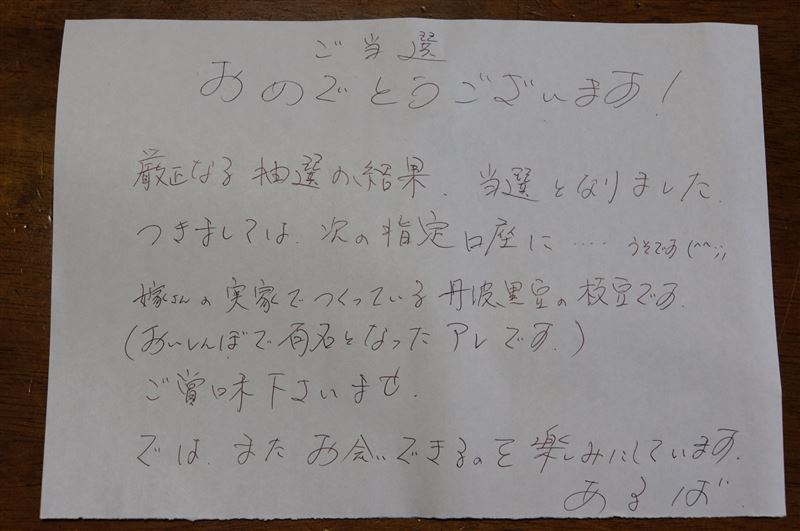 ご当選
おめでとうございます!
厳正なる抽選の結果、当選となりました
つきましては、次の指定口座に‥‥ うそです(^^;;
嫁さんの実家でつくっている丹波黒豆の枝豆です.
(おいしんぼで有名となったアレです.)
ご賞味下さいませ.
では、またお会いできるのを楽しみにしています.
あるば